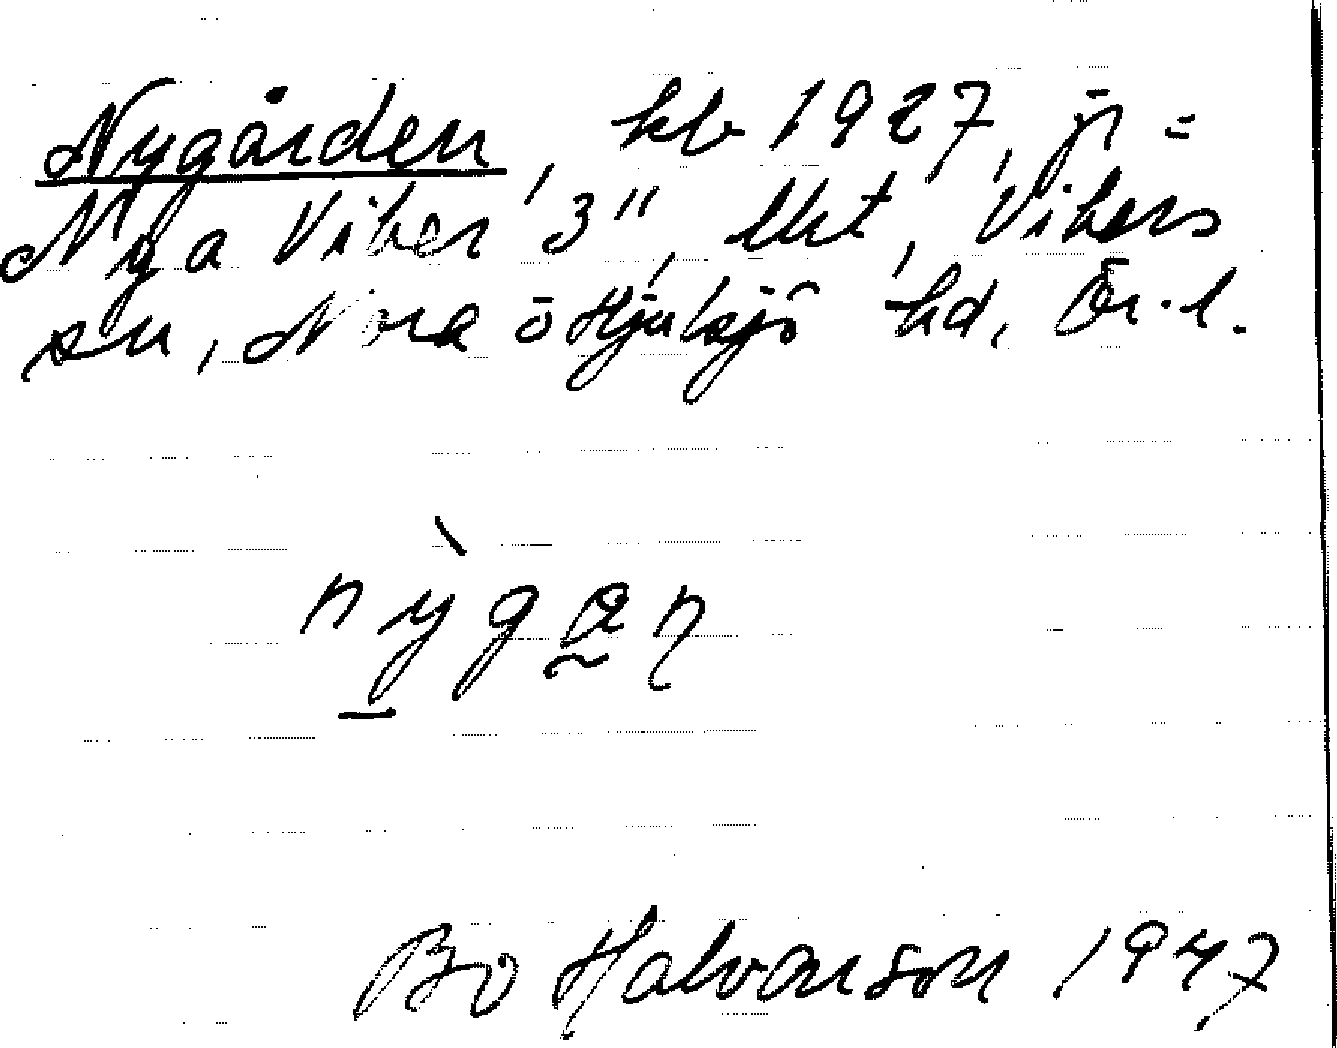 Nygården, kb 1927, jr =
Nya Viber 3", lht, Vibers
sn, Nora ö Hjulsjö hd, Ör. l.
nỳgạn
Bo Halvarson 1947